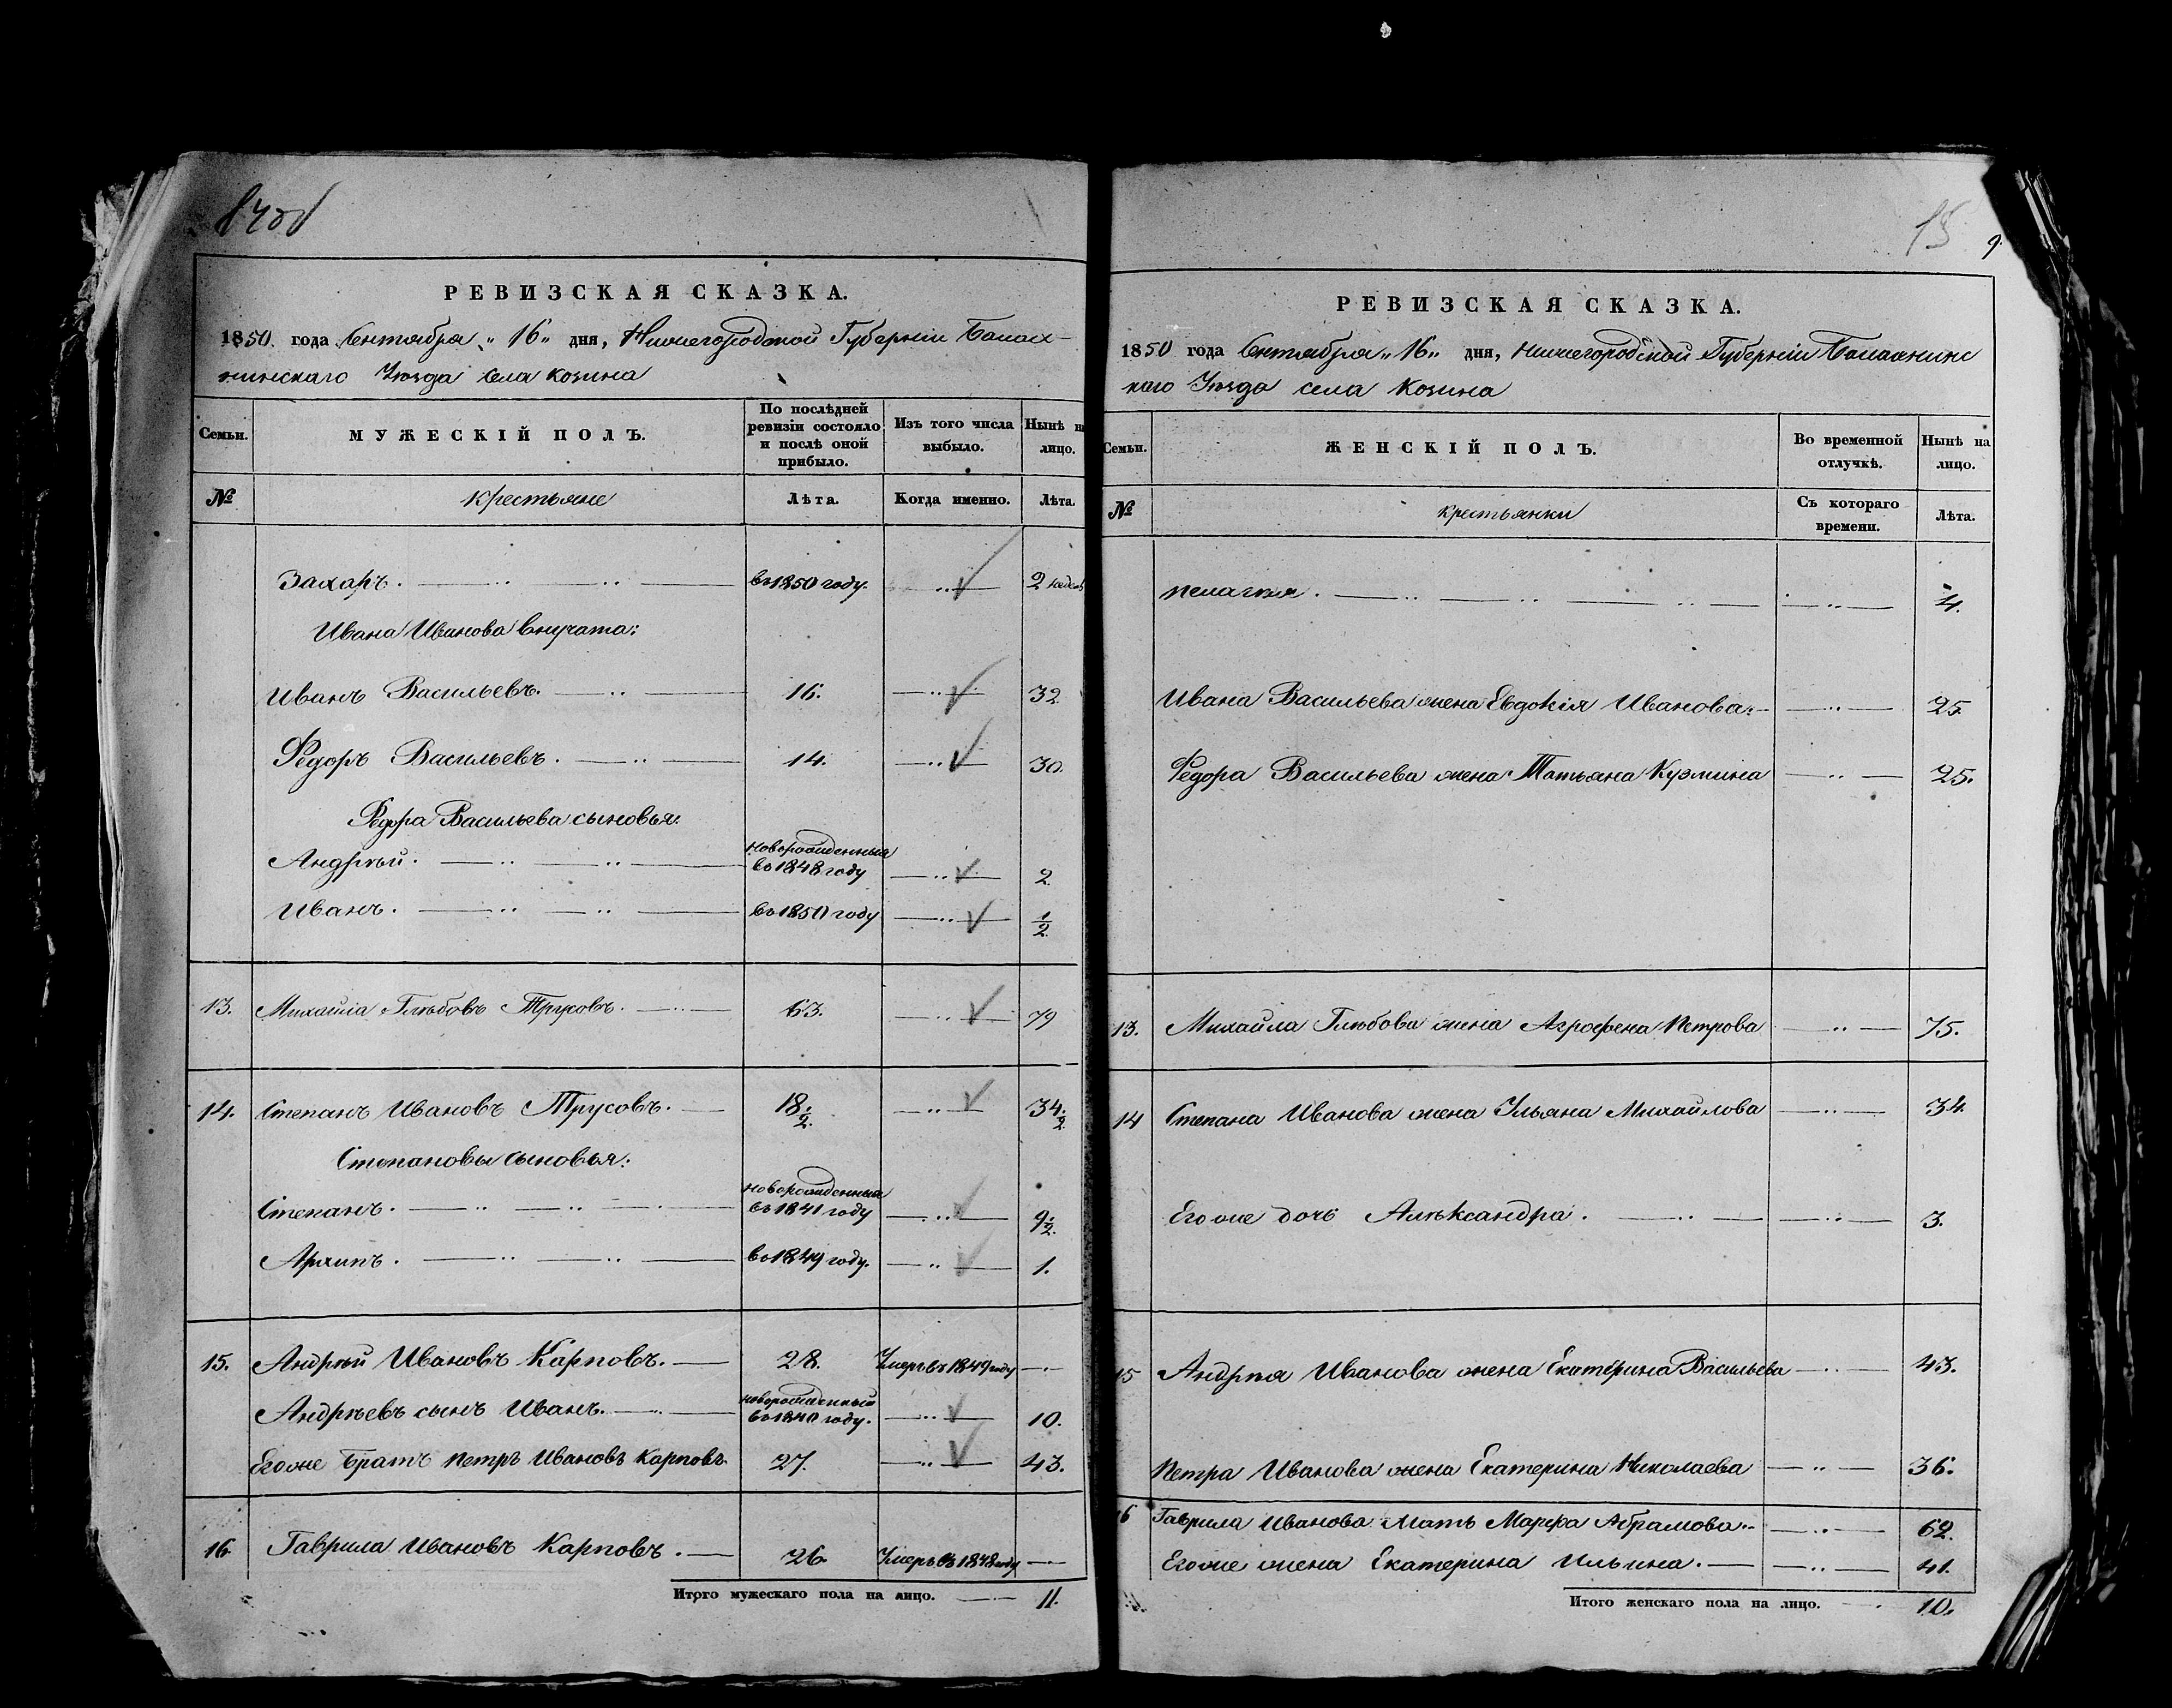 84об
РЕВИЗСКАЯ СКАЗКА.
1850 года Сентября „ 16 „ дня, Нижегородской Губерніи Балах-
нинскаго Уѣзда села Козина
Семьи. МУЖЕСКІЙ ПОЛЪ. По послѣдней ревизіи состояло и послѣ оной прибыло. Изъ того числа выбыло. Нынѣ на лицо.
№ Крестьяне Лѣта. Когда именно. Лѣта.
Захаръ. въ 1850 году. 2 недели
Ивана Иванова внучата:
Иванъ Васильевъ. 16. 32
Федоръ Васильевъ. 14. 30.
Федора Васильева сыновья:
Андрѣй. новорожденный въ 1848 году 2.
Иванъ. въ 1850 году 1/2.
13. Михайла Глѣбовъ Трусовъ. 63. 79
14. Степанъ Ивановъ Трусовъ. 18 1/2. 34 1/2.
Степановы сыновья:
Степанъ. новорожденный въ 1841 году 9 1/2.
Архипъ. въ 1849 году. 1.
15. Андрѣй Ивановъ Карповъ. 28. Умеръ въ 1849 году
Андрѣевъ сынъ Иванъ. новорожденный въ 1840 году. 10.
Егоже братъ Петръ Ивановъ Карповъ. 27. 43.
16. Гаврила Ивановъ Карповъ. 26. Умеръ въ 1848 году
Итого мужескаго пола на лицо. 11.
15
9.
РЕВИЗСКАЯ СКАЗКА.
1850 года Сентября „ 16 „ дня, Нижегородской Губерніи Балахнинс
каго Уѣзда села Козина
Семьи. ЖЕНСКІЙ ПОЛЪ. Во временной отлучкѣ. Нынѣ на лицо.
№ Крестьянки Съ котораго времени. Лѣта.
Пелагѣя. 4.
Ивана Васильева жена Евдокія Иванова. 25.
Федора Васильева жена Татьяна Кузмина 25.
13. Михайла Глѣбова жена Аграфена Петрова 75.
14 Степана Иванова жена Ульяна Михайлова 34.
Егоже дочь Алѣксандра. 3.
15 Андрѣя Иванова жена Екатерина Васильева 43.
Петра Иванова жена Екатерина Николаева 36.
16 Гаврила Иванова мать Марфа Абрамова. 62.
Егоже жена Екатерина Ильина. 41.
Итого женскаго пола на лицо. 10.